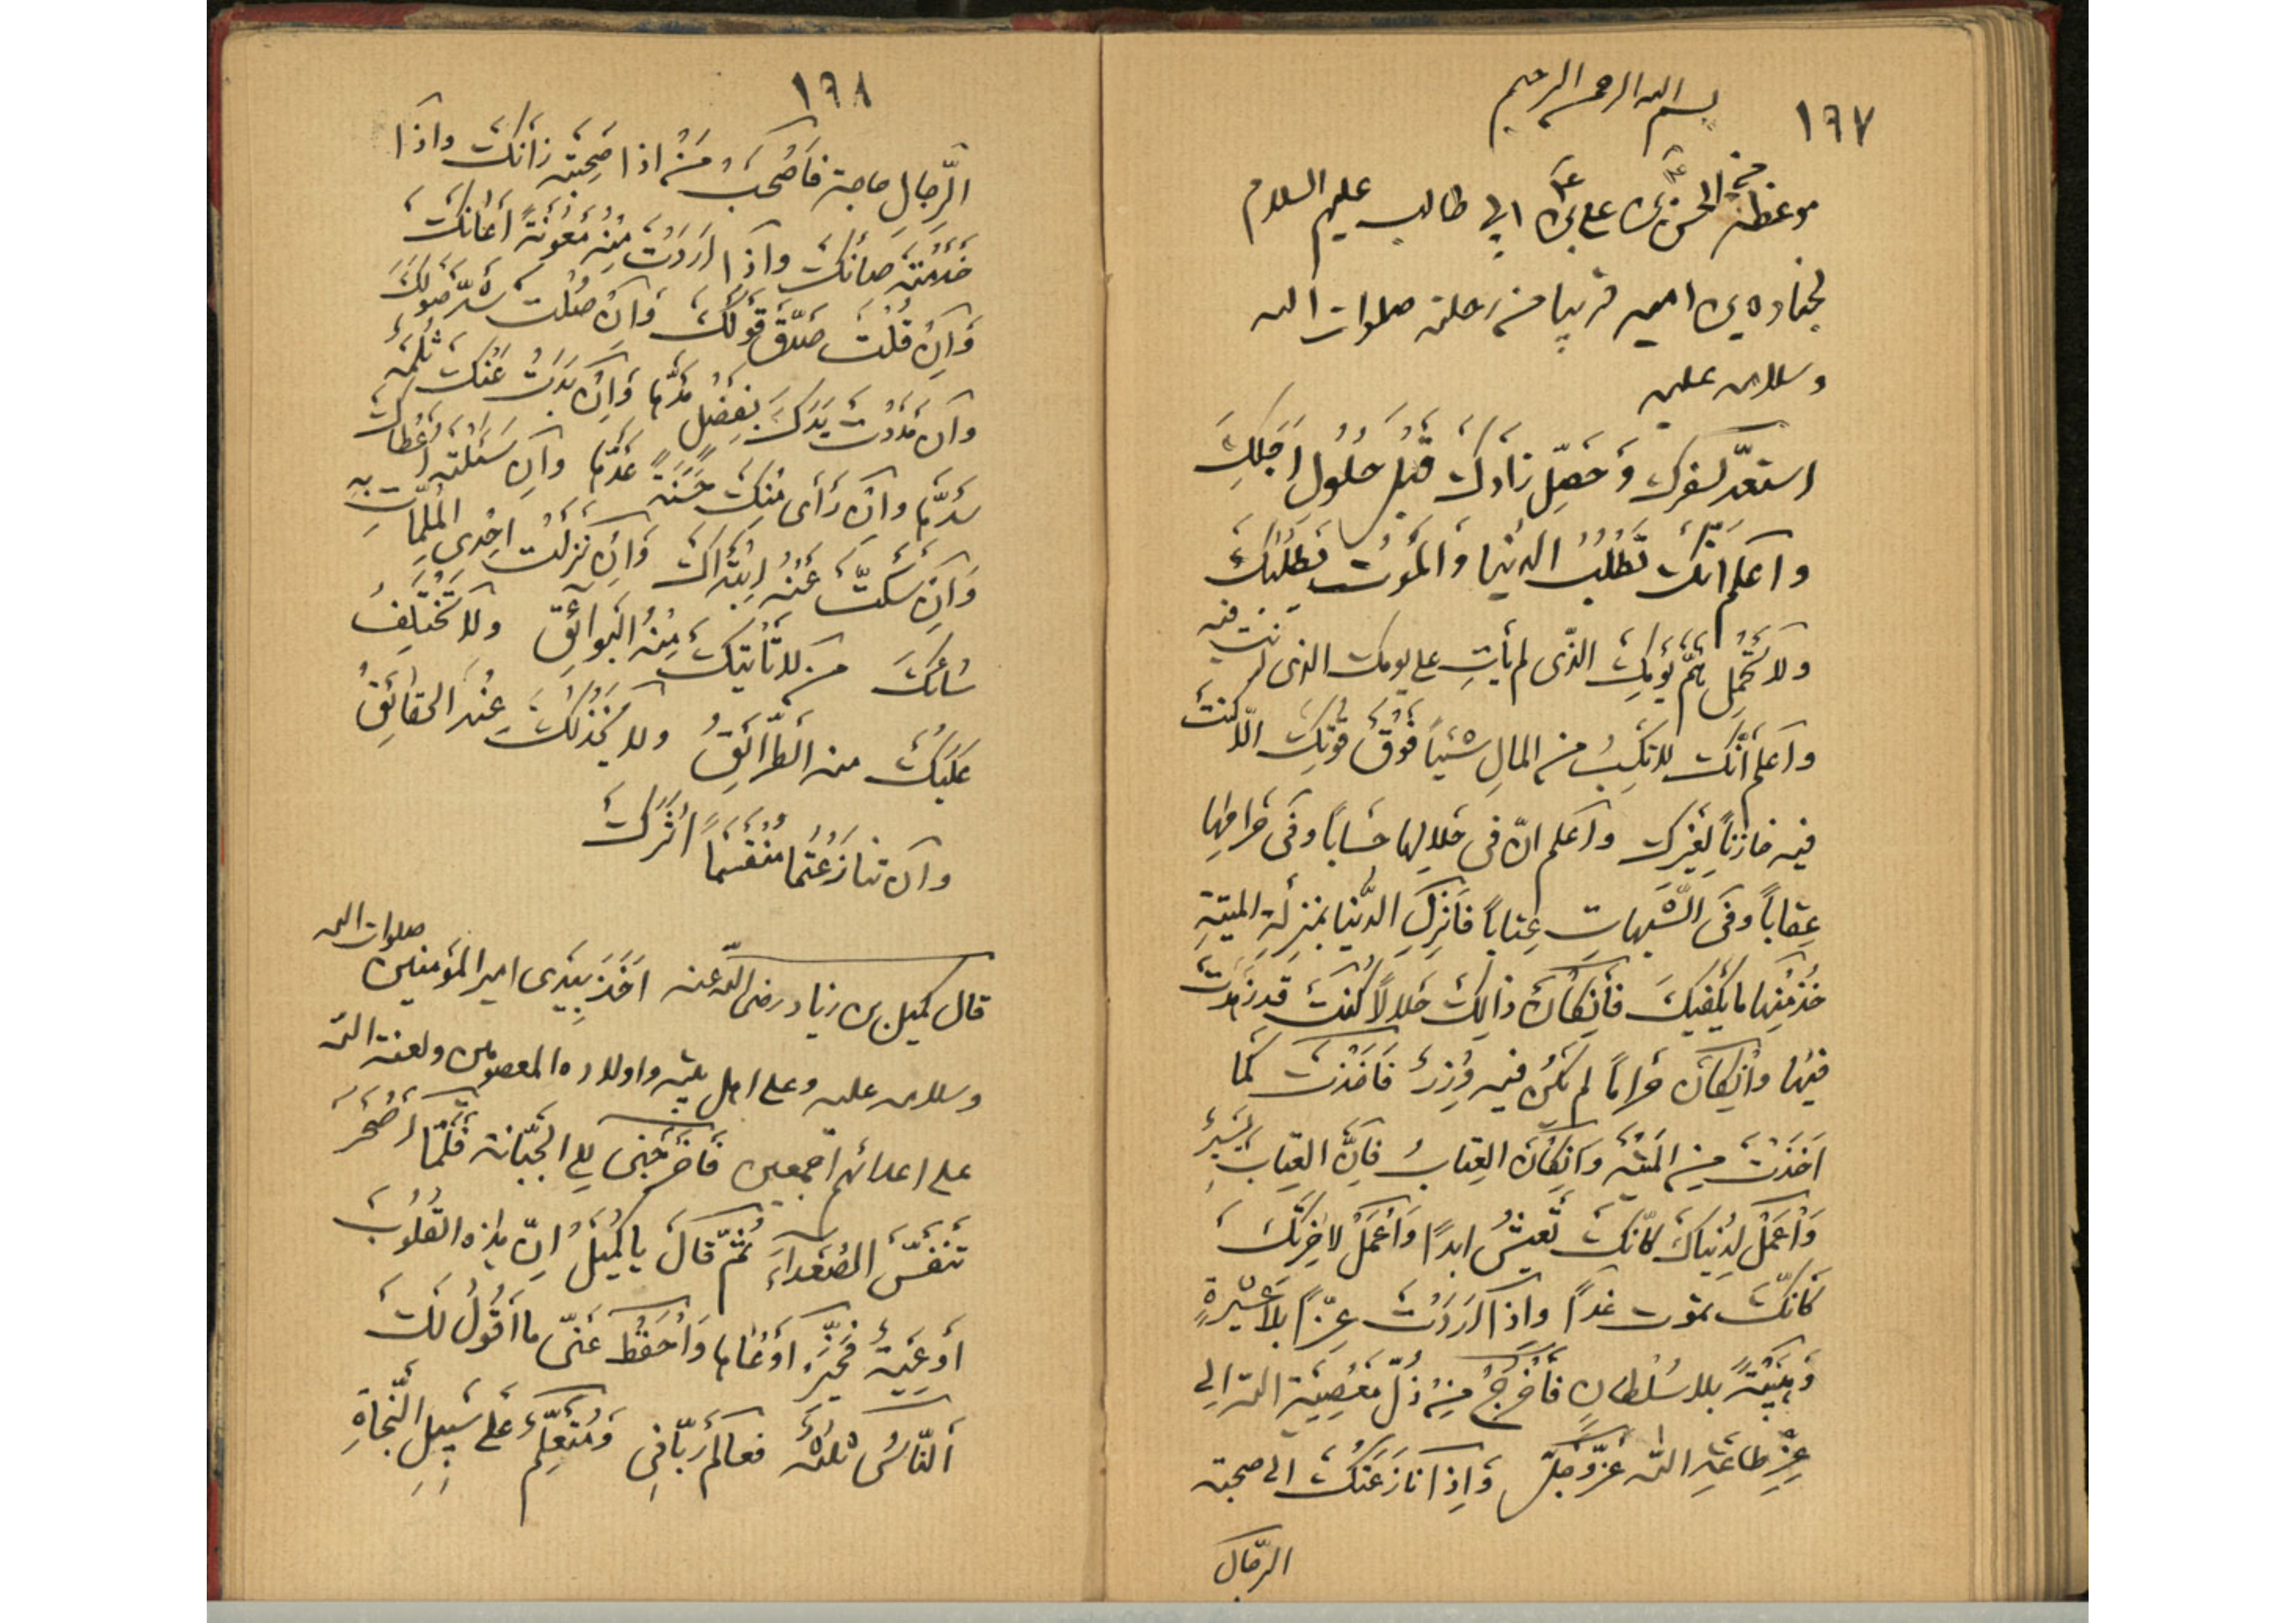 ١٩٧
بسم الله الرحمن الرحيم
موعظة الحسن بن علي بن ابي طالب عليهم السلام
لجنادة بن امية قريبا من رحلته صلوات الله
وسلامه عليه
استعدّ لسفرك وَحَصِّل زادكَ قبلَ حُلُولِ اَجَلِكَ
واعلم انّكَ تَطْلُبُ الدُنيا وَالمَوتُ يَطلُبُكَ
ولا تَحْمِل هَمَّ يَوْمِكَ الذّى لم يَأتِ على يومك الذى انت فيه
وَاعلم أنّكَ لا تكسِبُ من المالِ شَيئاً فَوْقَ قُوَّتِكَ الّا كنتَ
فيه خازناً لِغَيْرِكَ واعلم انّ فى حَلالِها حِسَاباً وفى حَرامِها
عِقاباً وفى الشّبهاتِ عِتاباً فَاَنزِلِ الدُّنيا بمَنزلَةِ الميتةِ
خُذ مِنها ما يَكفيكَ فَاِنكَانَ ذالِكَ حَلالاً كُنتَ قد زَهدْتَ
فيها واِنكانَ حراماً لم يَكُن فيه وِزرٌ فَاَخَذْتَ كَما
اَخَذْتَ مِنَ المَيْتَةِ وَاِنكَانَ العِتابُ فَاِنَّ العِتابَ يَسِيرٌ
وَاْعْمَلْ لِدُنياكَ كاَنّكَ تَعِيشُ ابداً وَاْعْمَلْ لاخِرَتِكَ
كَانّكَ تموت غداً واذا اَرَدْتَ عِزّاً بِلا عَشيْرةٍ
وَهَيْبَةً بلا سُلطانٍ فَاْخْرُجْ مِنْ ذُلِّ مَعْصِيَةِ الله الى
عِزِّ طاعَةِ الله عَزّ وجَلّ وَاِذا نازَعَتْكَ الى صحبة
الرّجال
١٩٨
الرِّجالِ حاجة فَاصْحَبْ مَنْ اذا صَحِبْتَه زانَكَ واذا
خَدَمْتَه صَانَكَ واذا اَرَدْتَ مِنه مَعُونَةً اَعَانَكَ
وَاِنْ قُلْتَ صَدّقَ قَوْلَكَ وَاِنْ صُلتَ شَدَّ صَولَكَ
وَاِن مَدَدْتَ يَدَكَ بِفَضْلٍ مَدَّها وَاِن بَدَتْ عَنْكَ ثُلْمَة
سَدَّها وان رَأى مِنكَ حَسَنَةً عَدَّها واِن سَئَلتَه اَعْطاكَ
وَاِن سَكَتَّ عَنْهُ ابتَدَاكَ وَاِن نَزَلَت اِحْدى المُلِمّاتِ بِه
سائَكَ من لا تَأتِيكَ مِنْهُ البَوائِقُ ولا تَخْتَلِفُ
عَلَيْكَ منه الطّرائِقُ ولا يَخْذُلُكَ عِنْدَ الحقائِقِ
وَاِن تنازَعْتُما مُنْقَسِماً اثَرَكَ
قال كميل بن زياد رضى الله عنه اَخَذَ بِيَدى امير المؤمنين صلوات الله
وسلامه عليه وعلى اهل بيته واولاده المعصومين ولعنة الله
على اعدائهم اجمعين فَاَخرَجَنى الى الجَبّانة فَلَمّا اَصْحَرَ
تَنَفّسَ الصُعَداءَ ثُمّ قالَ يا كُمَيْلُ اِنّ هذه القُلُوبَ
أوعِيَةٌ فَخَيْرُها اَوْعَاها وَاْحْفَظْ عَنّى ما اَقُولُ لَكَ
اَلنّاسُ ثلثة فعالم رَبّانى وَمُتعلِّمٌ عَلى سَبِيلِ النَّجاةِ